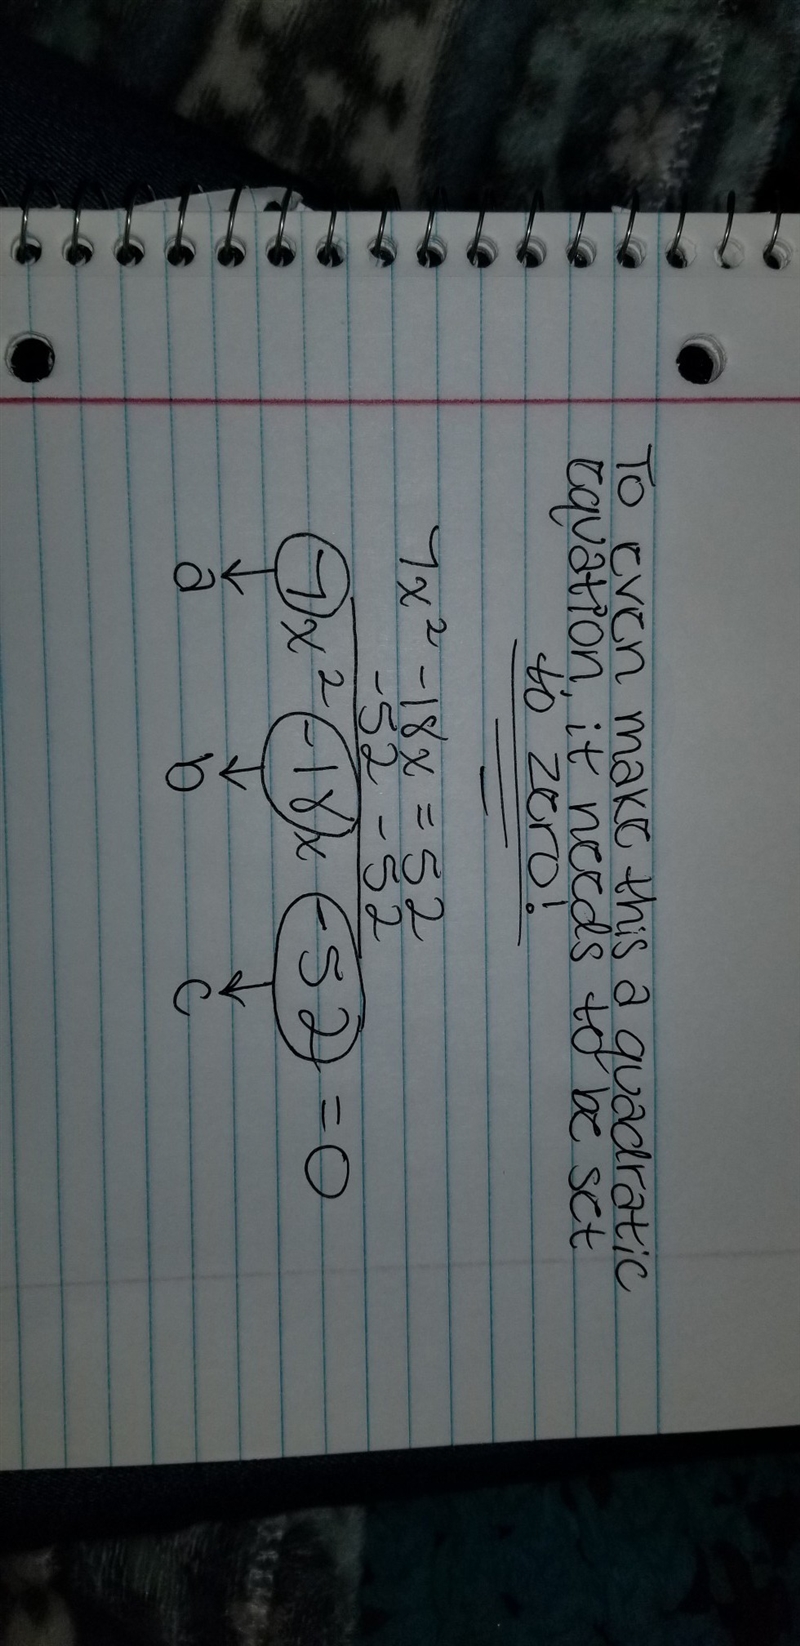 To even make this a quadratic
equation, it needs to be set
to zero!
7x² -18x = 52
-52 -52
7x² -18x -52 = 0
a b c